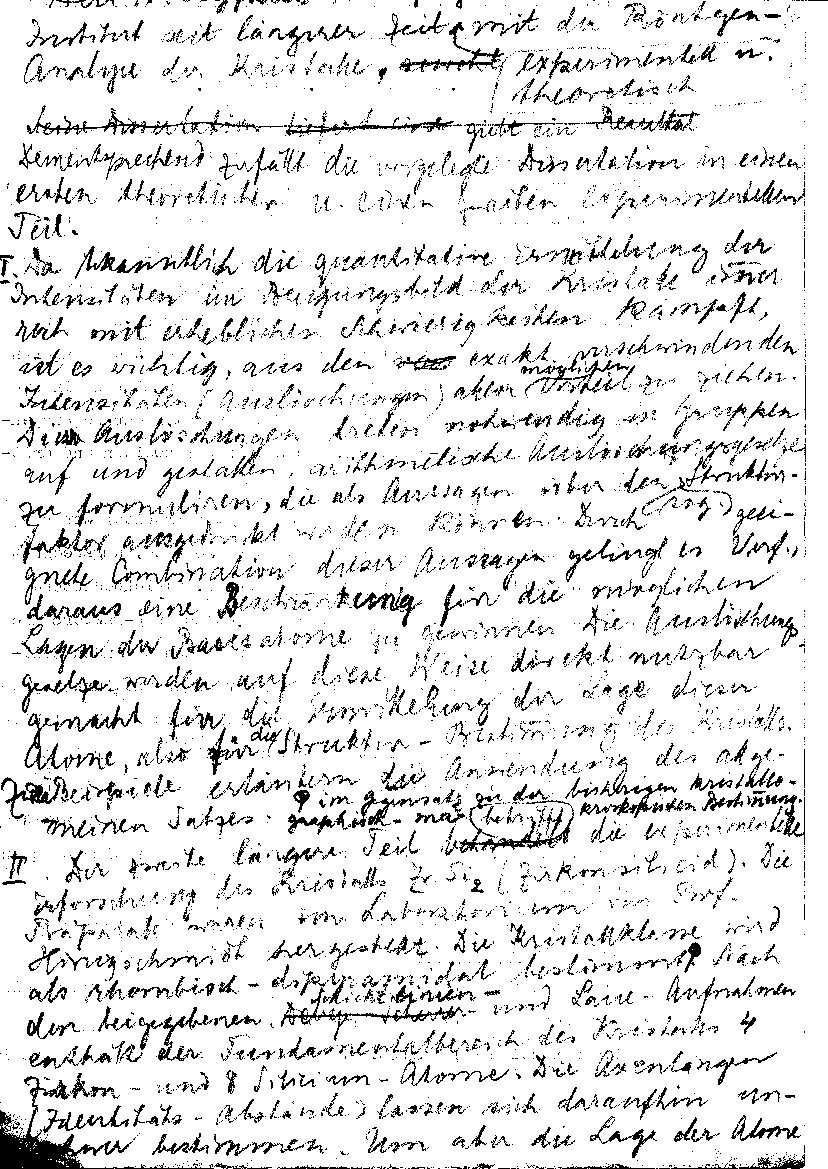 Institut seit längerer Zeit mit der Röntgen-
Analyse der Kristalle, sowohl experimentell u.
theoretisch
Seine Dissertation liefert eine giebt ein Resultat
Dementsprechend zerfällt die vorgelegte Dissertation in einen
ersten theoretischen u. einen zweiten experimentellen
Teil.
I. Da bekanntlich die quantitative Ermittelung der
Intensitäten im Beugungsbild der Kristalle immer
noch mit erheblichen Schwierigkeiten kämpft,
ist es wichtig, aus den exakt verschwindenden
Intensitäten (Auslöschungen) allen möglichen Vorteil zu ziehen.
Diese Auslöschungen treten notwendig in Gruppen
auf und gestatten, arithmetische Auslöschungsgesetze
zu formuliren, die als Aussagen über den Struktur-
faktor ausgedrückt werden können. Durch geei-
gnete Combination dieser Aussagen gelingt es Verf.,
daraus eine Beschränkung für die möglichen
Lagen der Basisatome zu gewinnen. Die Auslöschungs-
gesetze werden auf diese Weise direkt nutzbar
gemacht für die Ermittelung der Lage dieser
Atome, also für die Struktur-Bestimmung des Kristalls.
Zwei Beispiele erläutern die Anwendung des allge-
meinen Satzes.
im Gegensatz zu der bisherigen kristallo-
graphisch- mikroskopischen Bestimmung.
II. Der zweite längere Teil behandelt betrifft die experimentelle
Erforschung des Kristalls Zr Si2 (Zirkonsilicid). Die
Präparate waren im Laboratorium von Prof.
Hönigschmidt hergestellt. Die Kristallklasse wird
als rhombisch-dipyramidal bestimmt. Nach
den beigegebenen Debye-Scherrer- Schichtlinien- und Laue-Aufnahmen
enthält der Fundamentalbereich des Kristalls 4
Zirkon- und 8 Silicium-Atome. Die Axenlängen
(Identitäts-Abstände) lassen sich daraufhin un-
schwer bestimmen. Um aber die Lage der Atome